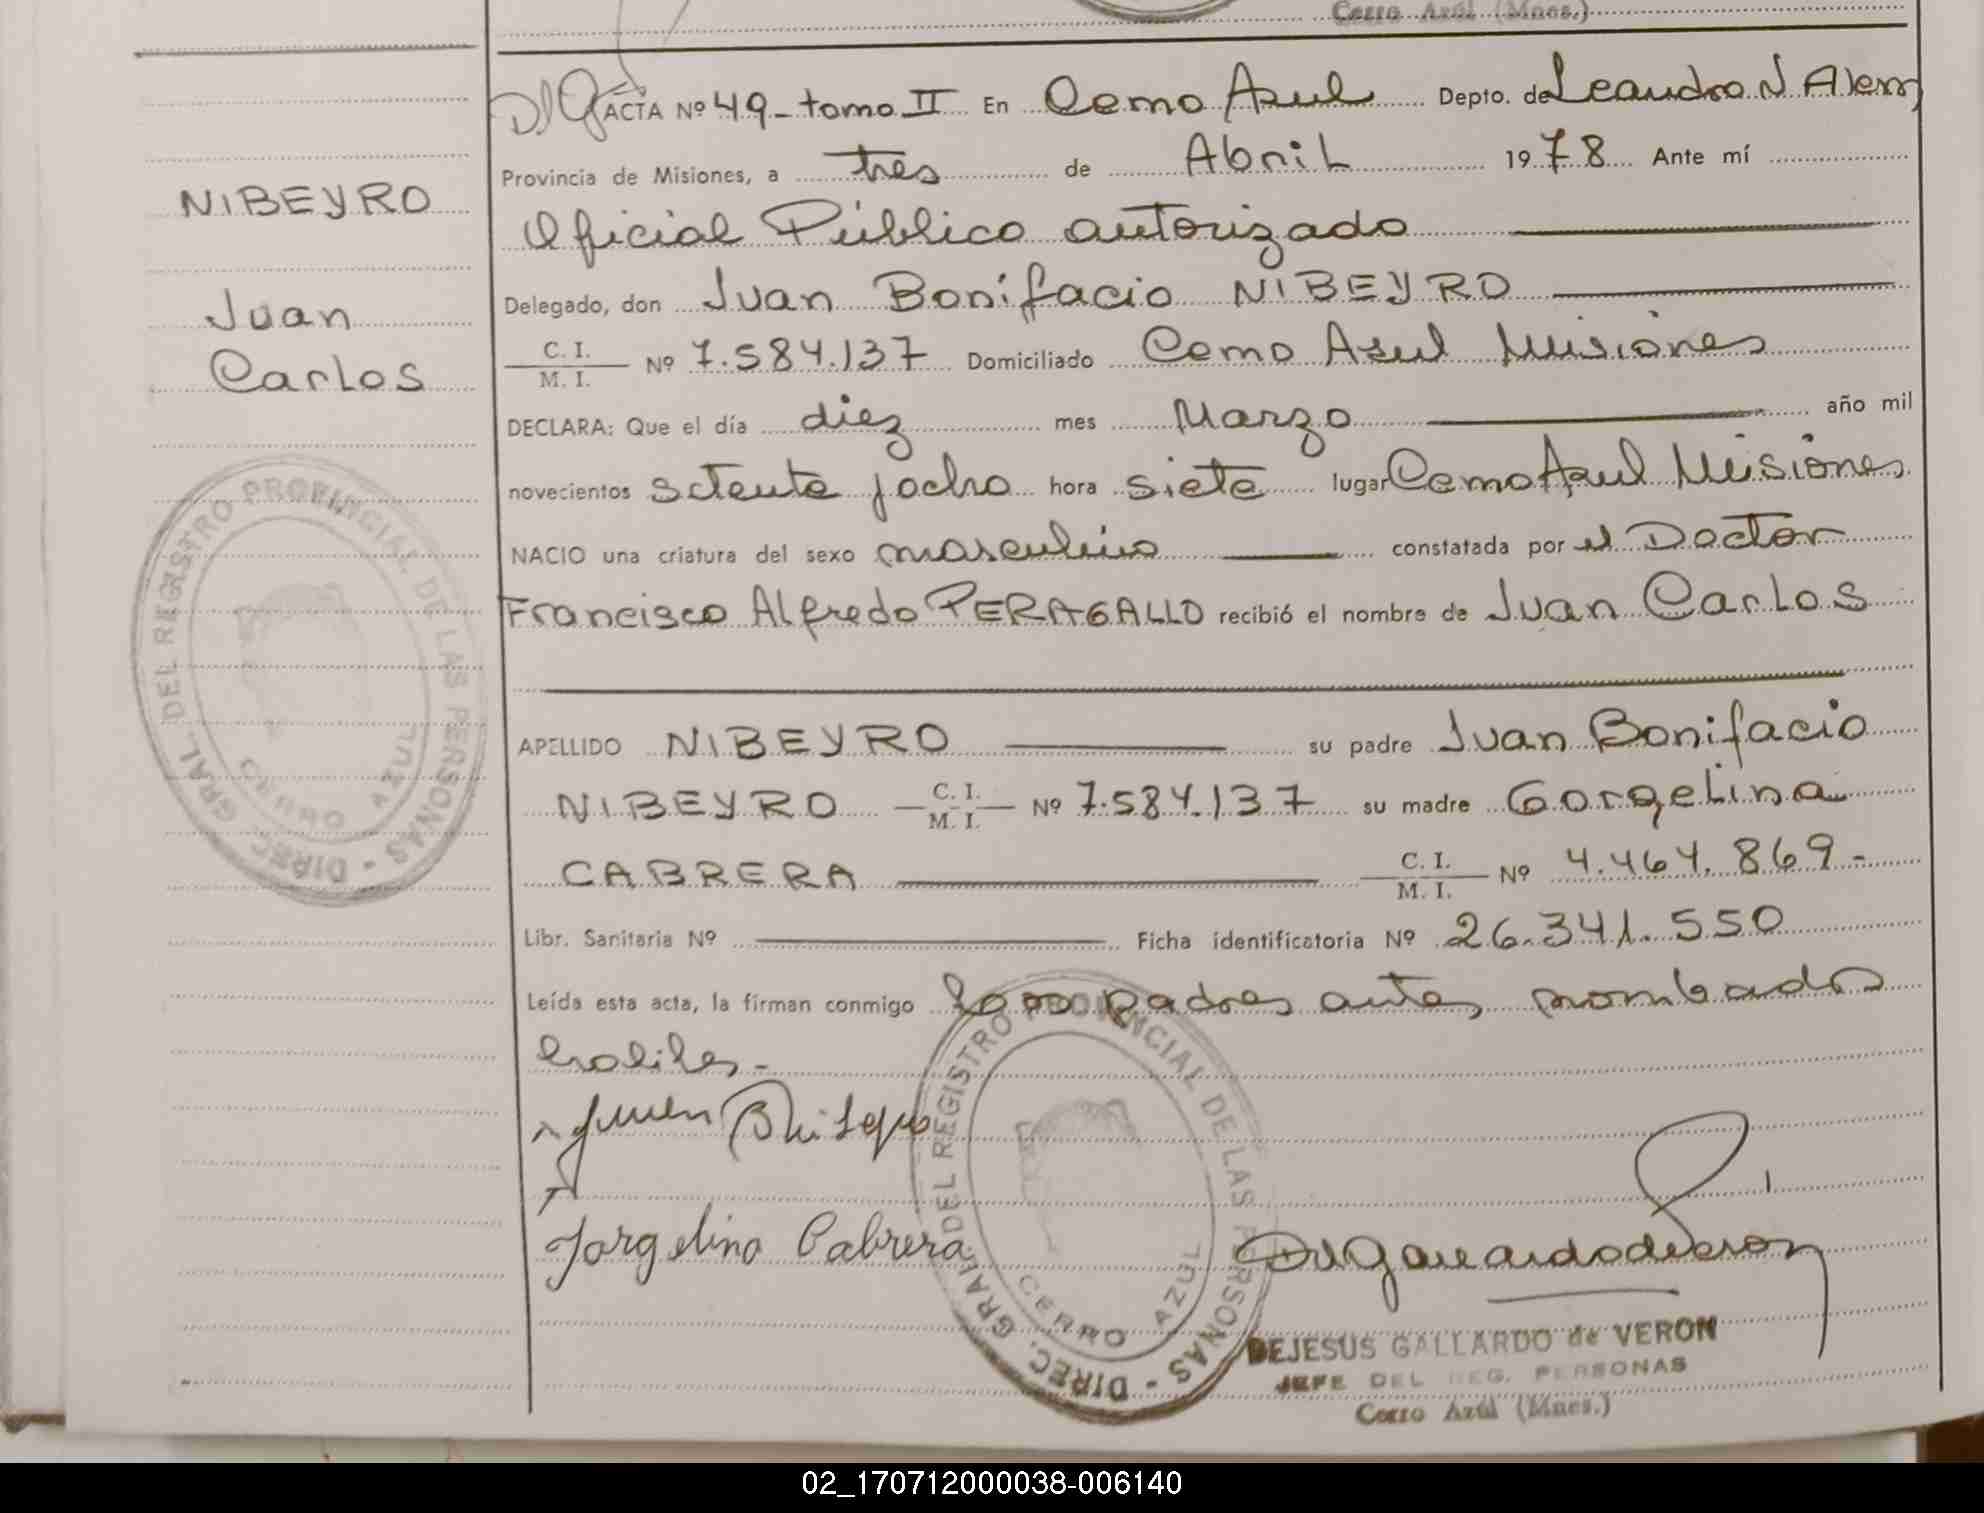 Cerro Azul (Mnes.)
ACTA Nº 49 - tomo II En Cerro Azul Depto. de Leandro N Alem
Provincia de Misiones, a tres de Abril 1978 Ante mí
NIBEYRO
Oficial Público autorizado
Delegado, don Juan Bonifacio NIBEYRO
Juan
Carlos
C. I. / M. I. Nº 7.584.137 Domiciliado Cerro Azul Misiones
DECLARA: Que el día diez mes Marzo año mil
novecientos setenta y ocho hora siete lugar Cerro Azul Misiones
NACIO una criatura del sexo masculino constatada por el Doctor
Francisco Alfredo PERAGALLO recibió el nombre de Juan Carlos
APELLIDO NIBEYRO su padre Juan Bonifacio
NIBEYRO C. I. / M. I. Nº 7.584.137 su madre Gorgelina
CABRERA C. I. / M. I. Nº 4.464.869-
Libr. Sanitaria Nº Ficha identificatoria Nº 26.341.550
Leída esta acta, la firman conmigo los padres antes nombrados
hábiles.-
DIREC. GRAL. DEL REGISTRO PROVINCIAL DE LAS PERSONAS -
CERRO AZUL
DIREC. GRAL. DEL REGISTRO PROVINCIAL DE LAS PERSONAS -
CERRO AZUL
Juan
Jorgelina Cabrera
DEJESUS GALLARDO de VERON
JEFE DEL REG. PERSONAS
Cerro Azul (Mnes.)
02_170712000038-006140